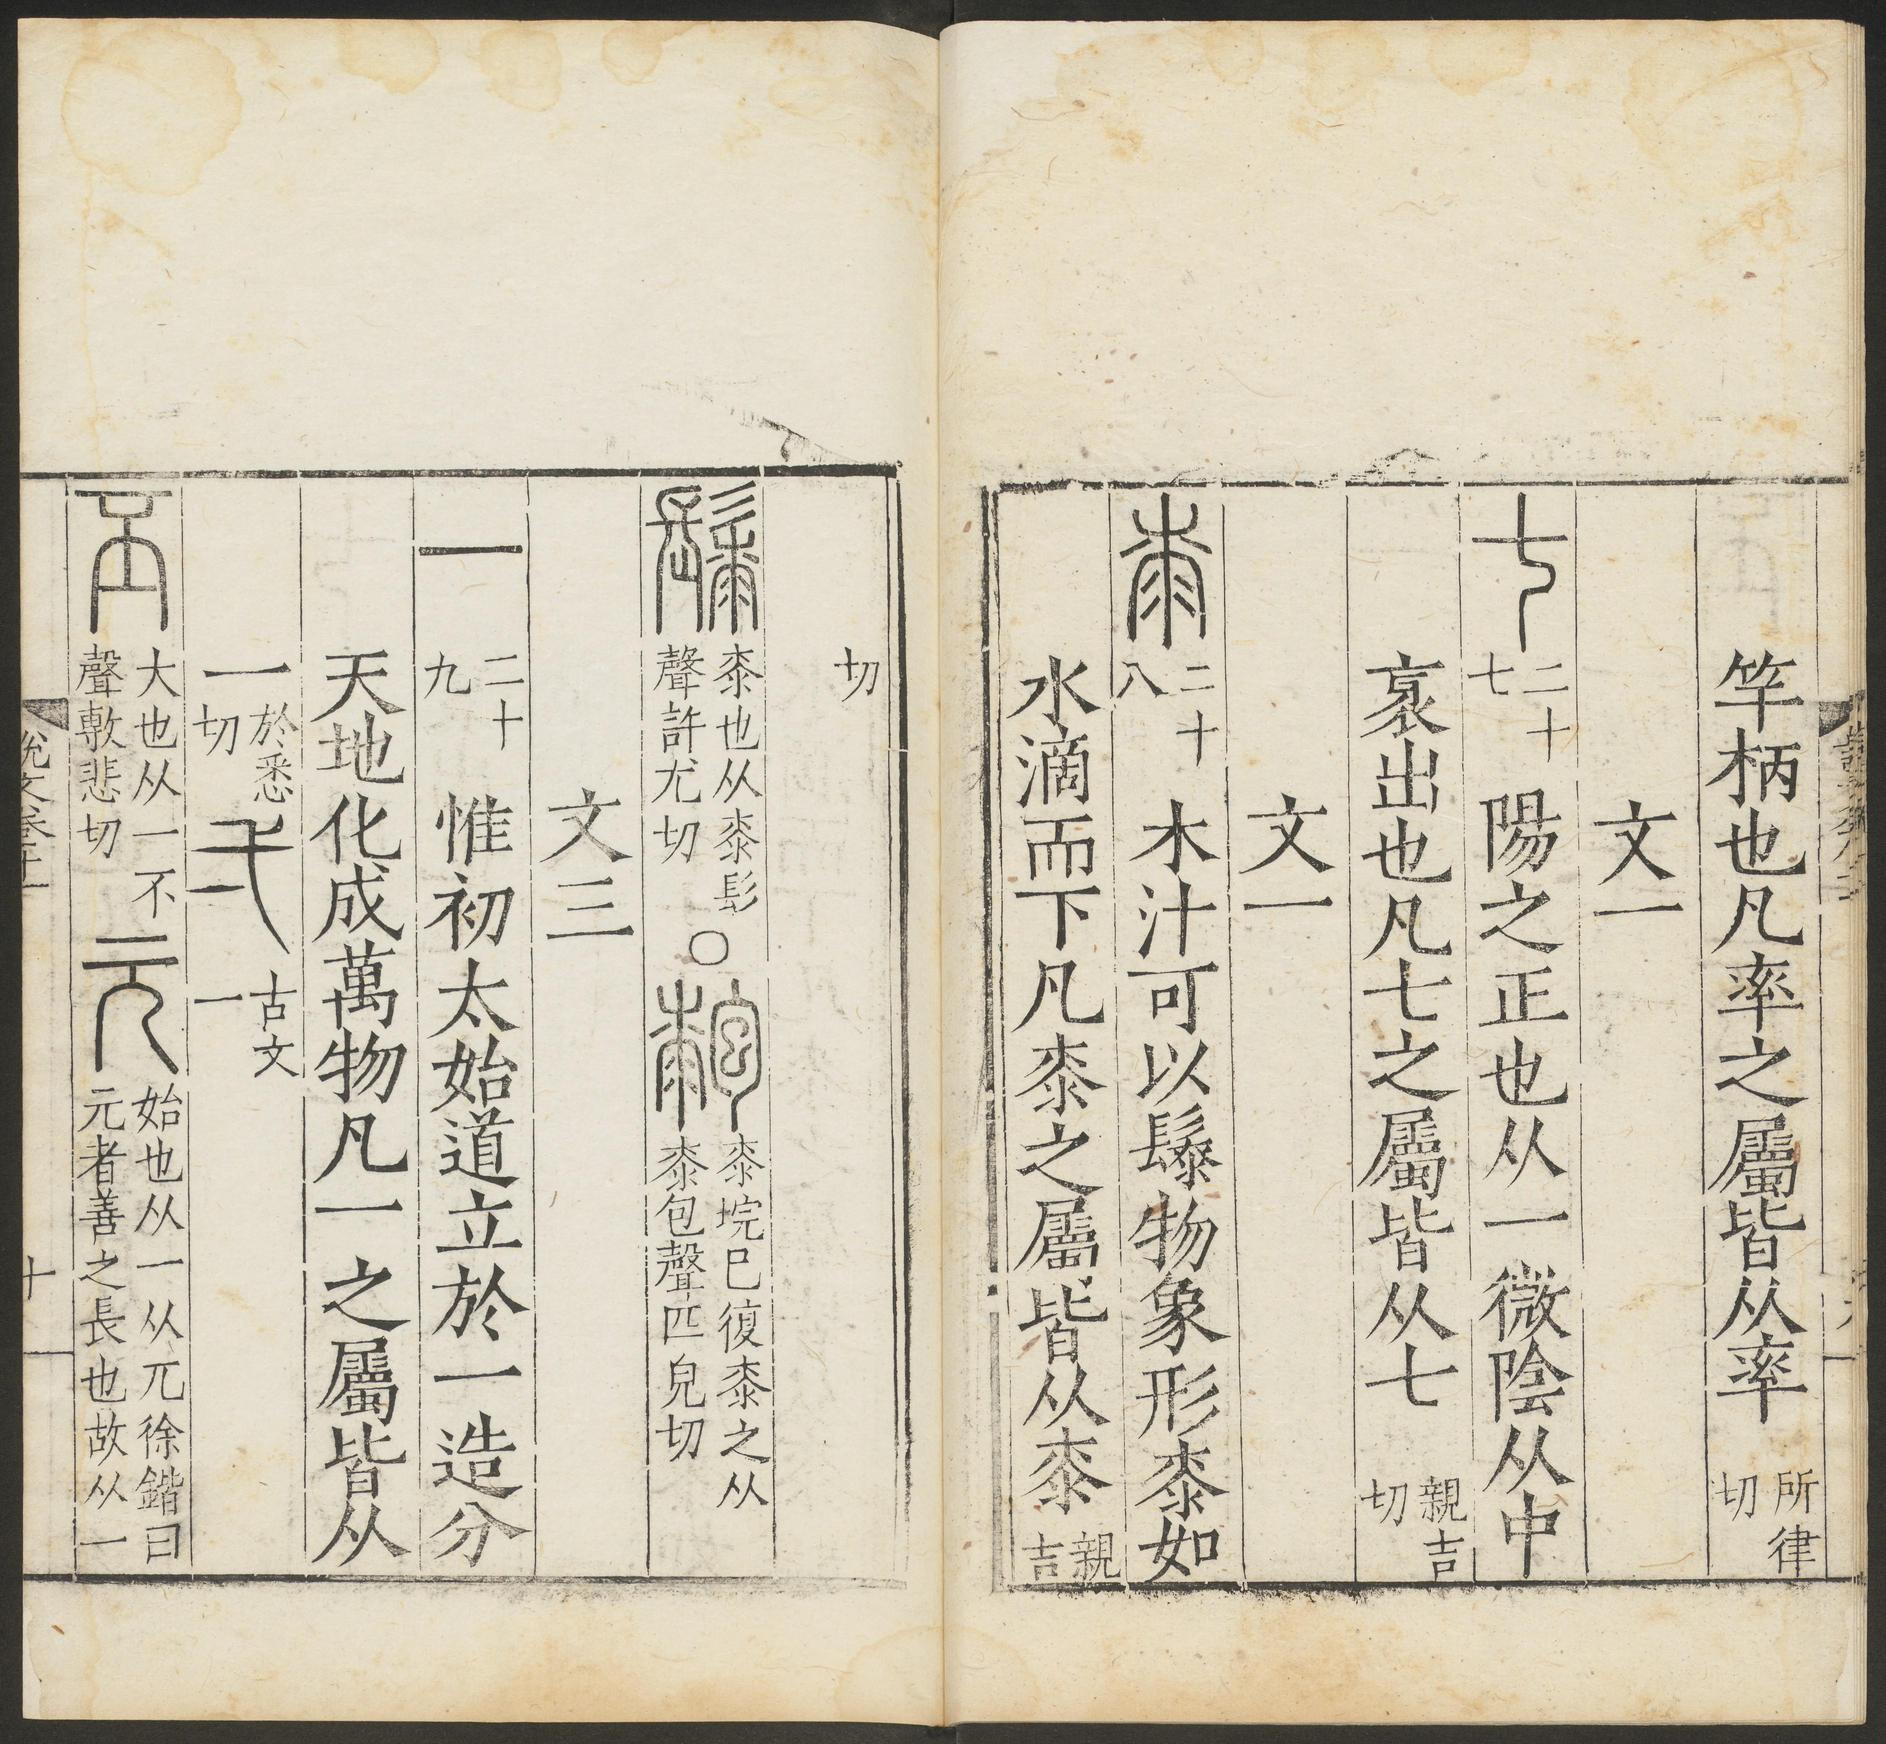 竿柄也凡率之屬皆从率 所律切
文一
七 二十七 陽之正也从一微陰从中
衺出也凡七之屬皆从七 親吉切
文一
桼 二十八 木汁可以䰍物象形桼如
水滴而下凡桼之屬皆从桼 親吉
切
䰍 桼也从桼髟聲許尤切 〇 䵢 桼垸巳復桼之从桼包聲匹皃切
文三
一 二十九 惟初太始道立於一造分
天地化成萬物凡一之屬皆从
一 於悉切 弌 古文一
丕 大也从一不聲敷悲切 元 始也从一从兀徐鍇曰元者善之長也故从一
說文卷十一
十